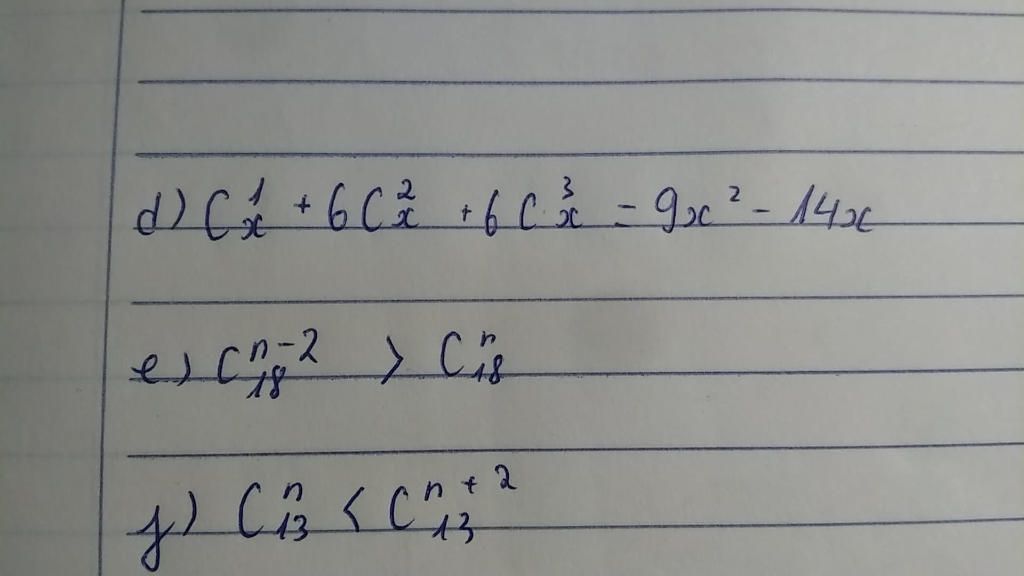 d) C¹ₓ + 6C²ₓ + 6C³ₓ = 9x² - 14x
e) C₁₈ⁿ⁻² > C₁₈ⁿ
f) C₁₃ⁿ < C₁₃ⁿ⁺²